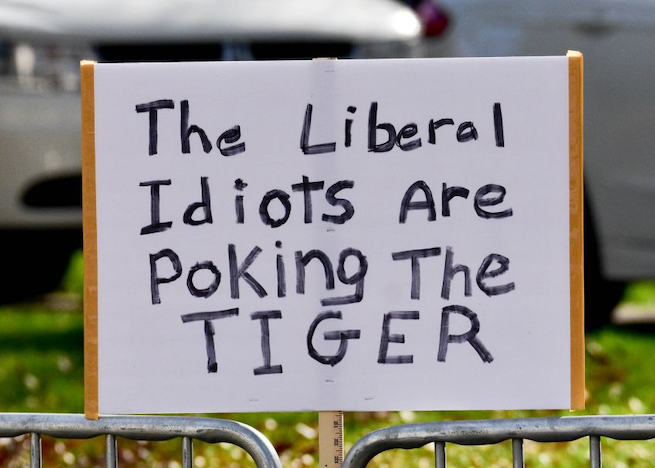 The Liberal
Idiots Are
Poking The
TIGER